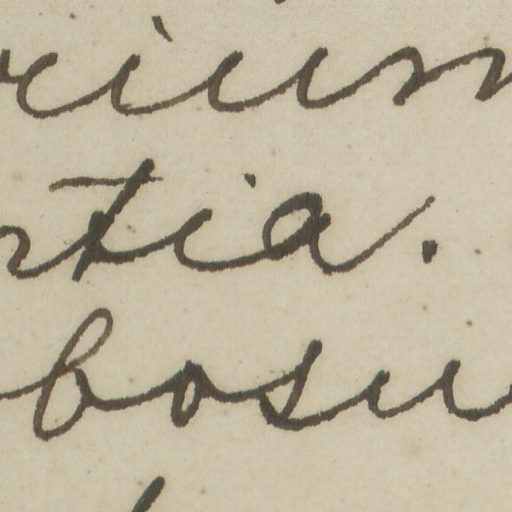 cium
rtia.
bosu